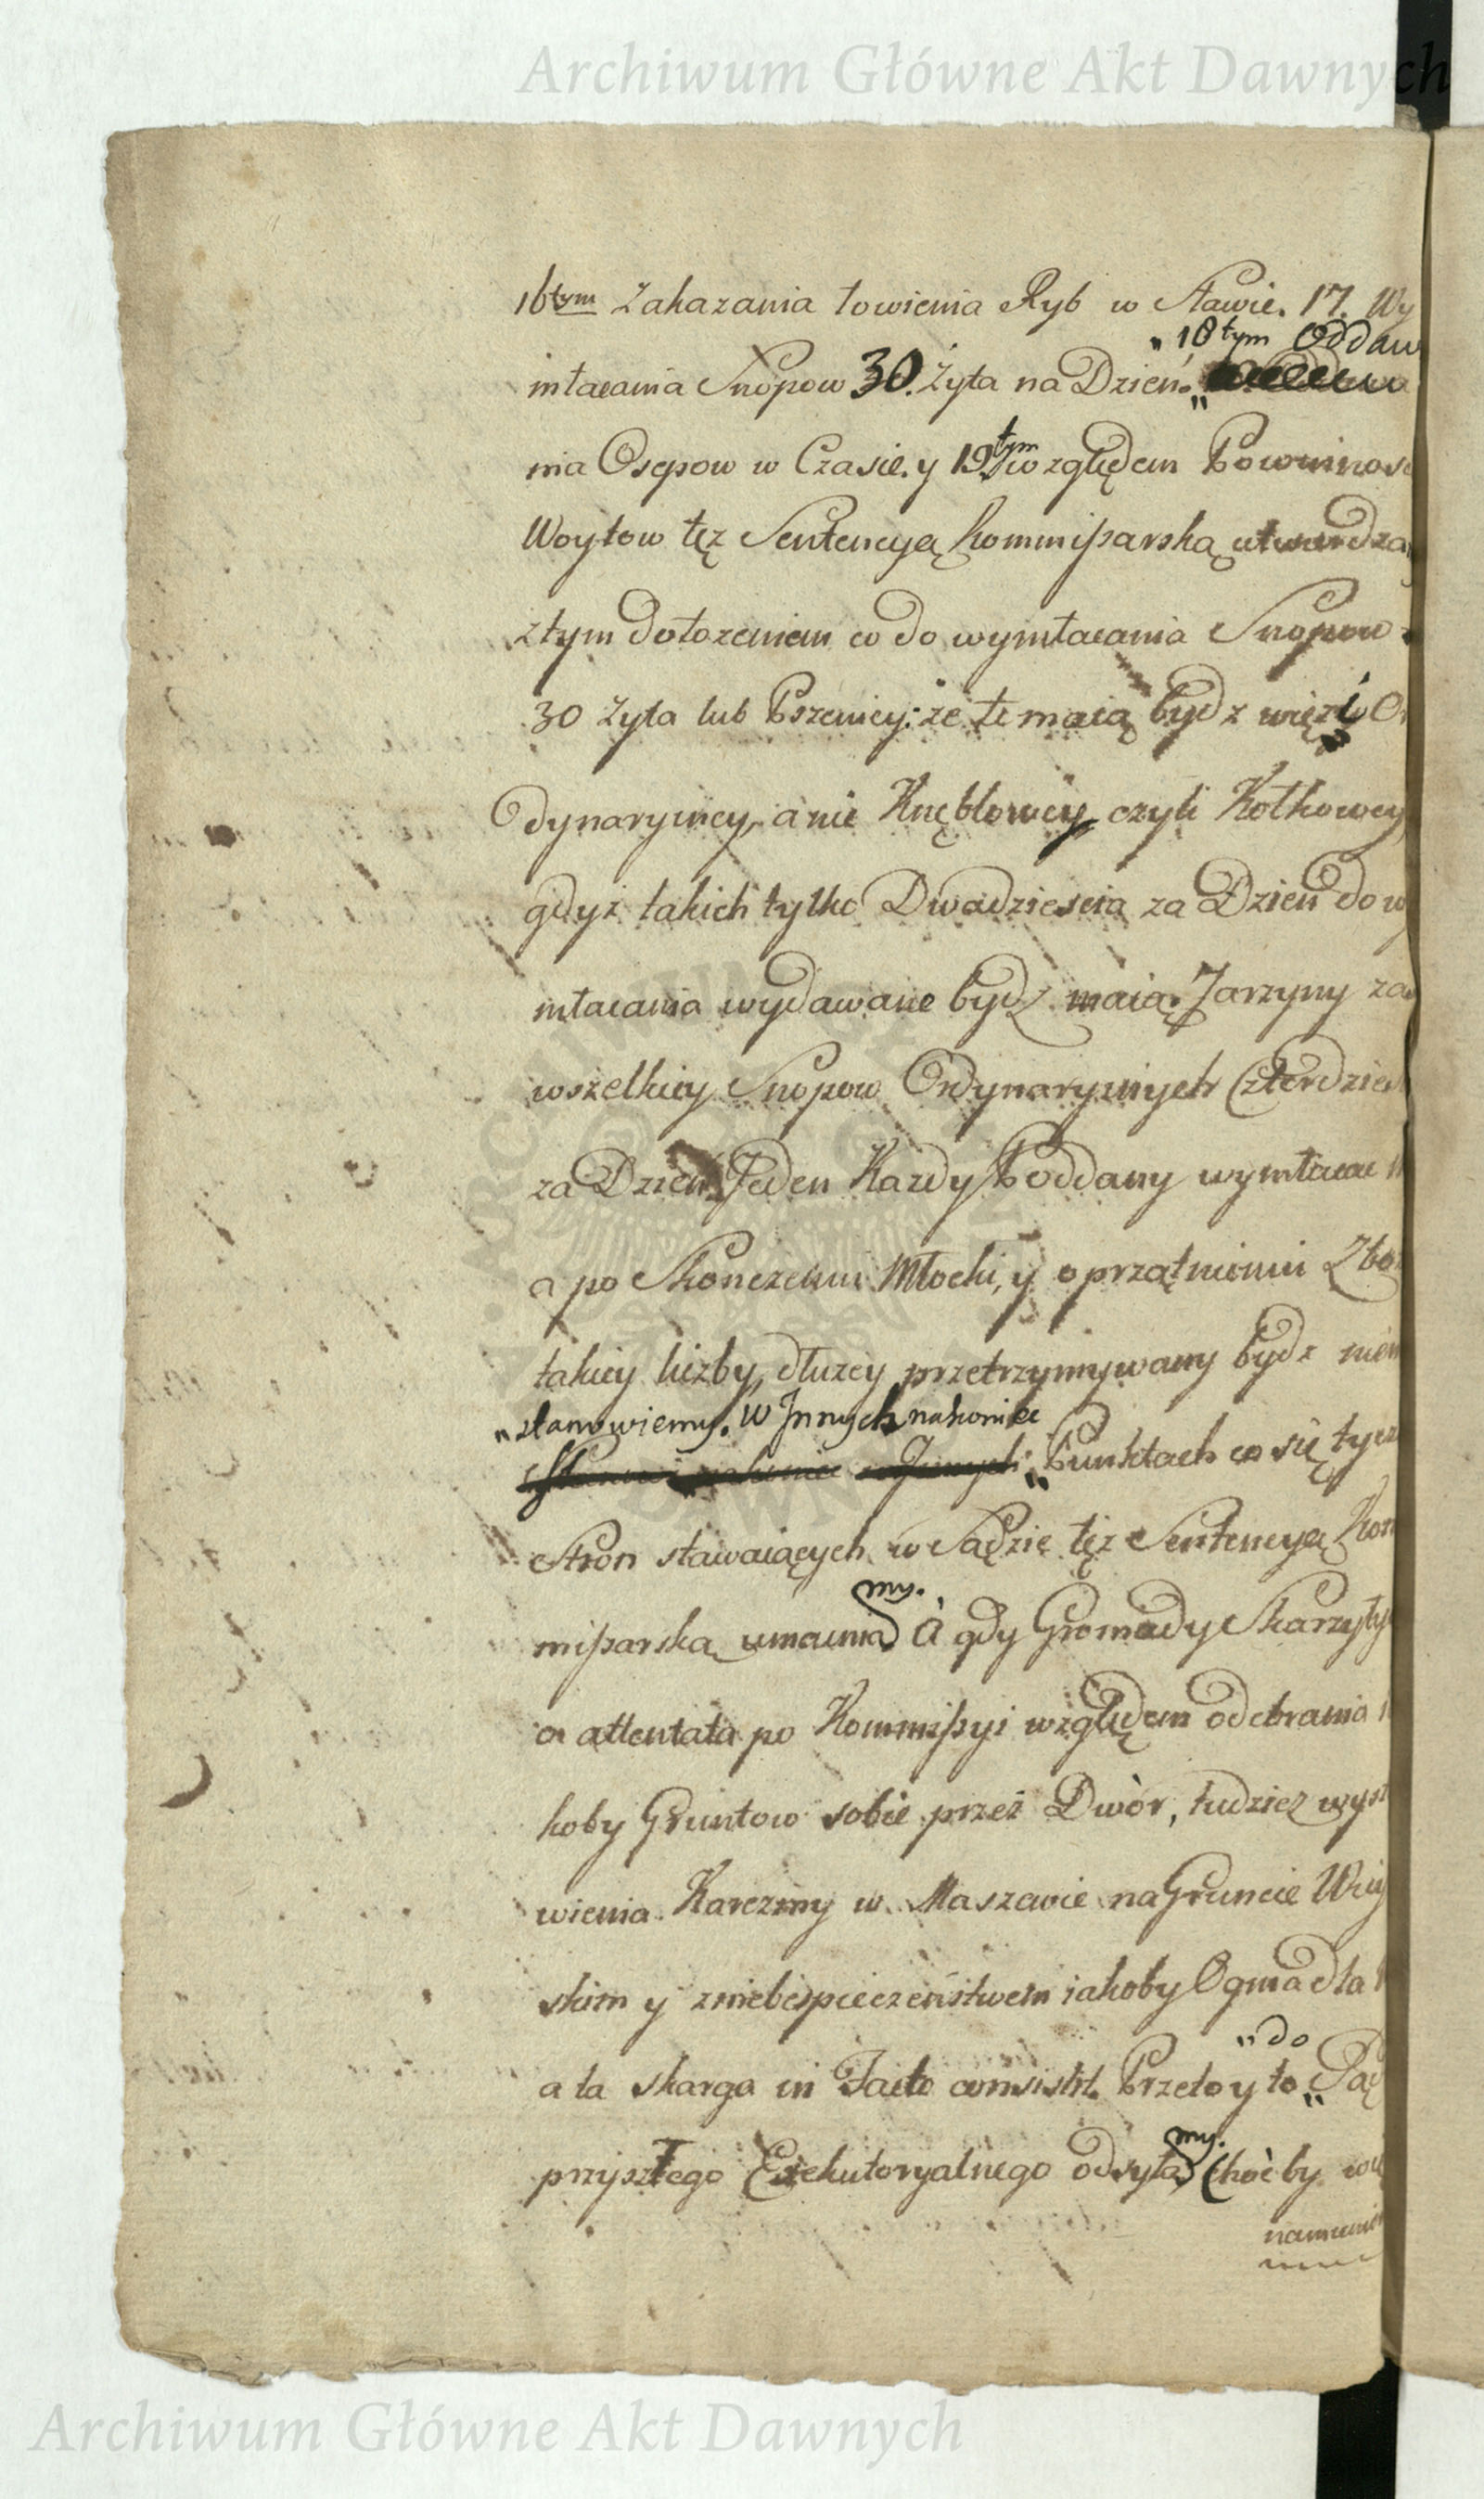 Archiwum Główne Akt Dawnych
16tym Zakazania łowienia Ryb w Stawie. 17. Wy
młacania Snopow 30. Żyta na Dzień. „18tym Oddaw
nia Osepow w Czasie. y 19tym względem Powinnosc
Woytow tęż Sentencyą Kommissarską utwierdza
z tym dołozeniem co do wymłacania Snopow
30 Zyta lub Pszenicy: że te maią bydz więzi Or
dynaryiney, a nie Knęblowey czyli Kołkowey,
gdyż takich tylko Dwadziescia za Dzień do wy
młacania wydawane bydź maią. Jarzyny zaś
wszelkiey Snopow Ordynaryinych Czterdzies
za Dzień Jeden Kazdy Poddany wymłacac m
a po Skonczeniu Młocki, y oprzątnieniu Zboż
takiey liczby, dłuzey przetrzymywany bydz niem
„stanowiemy. W Jnnych nakoniec
„Punktach co się tycz
Stron stawaiących w Sądzie tęż Sentencyą Kom
missarską umacnia my. A gdy Gromady Skarzyły
o attentata po Kommissyi względem odebrania ia
koby Gruntow sobie przez Dwòr, tudziez wyst
wienia Karczmy w Maszewie na Gruncie Wiey
skim y zniebespieczeństwem iakoby Ognia dla
a ta skarga in Facto consistit. Przeto y to „do Są
przyszłego Exekutoryalnego odsyła my. Choćby
namieni
Archiwum Główne Akt Dawnych